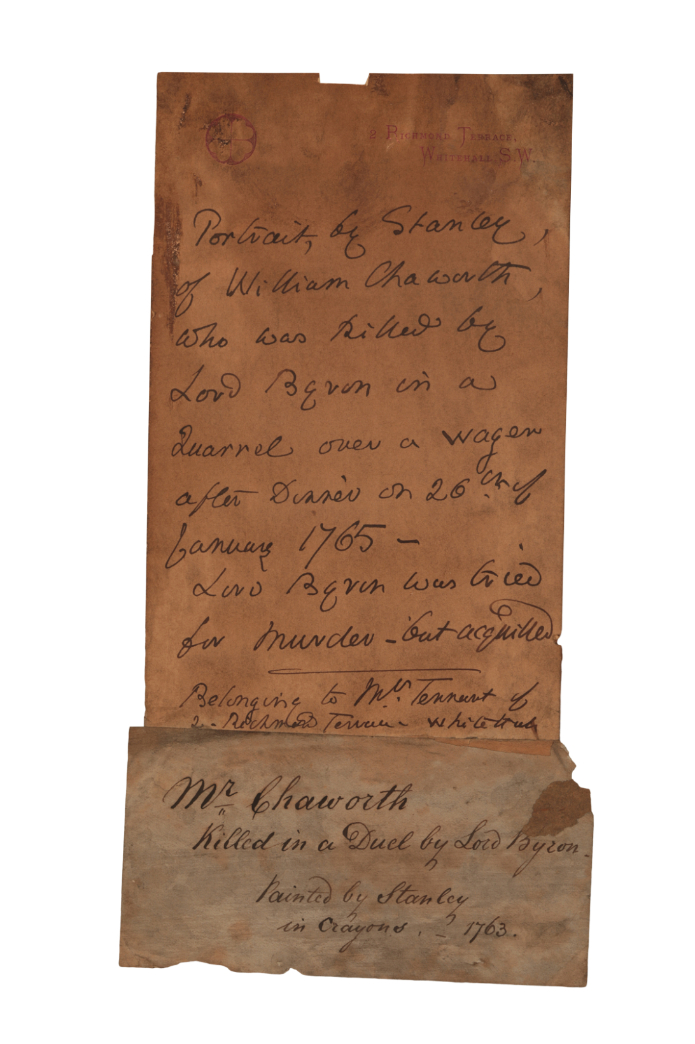 2 Richmond Terrace,
Whitehall, S.W.
Portrait, by Stanley,
of William Chaworth,
who was killed by
Lord Byron in a
Quarrel over a wager
after Dinner on 26th of
January 1765 –
Lord Byron was tried
for Murder – but acquitted.
Belonging to Mrs Tennant of
2 – Richmond Terrace – Whitehall
Mr Chaworth
Killed in a Duel by Lord Byron.
Painted by Stanley
in Crayons. – 1763.